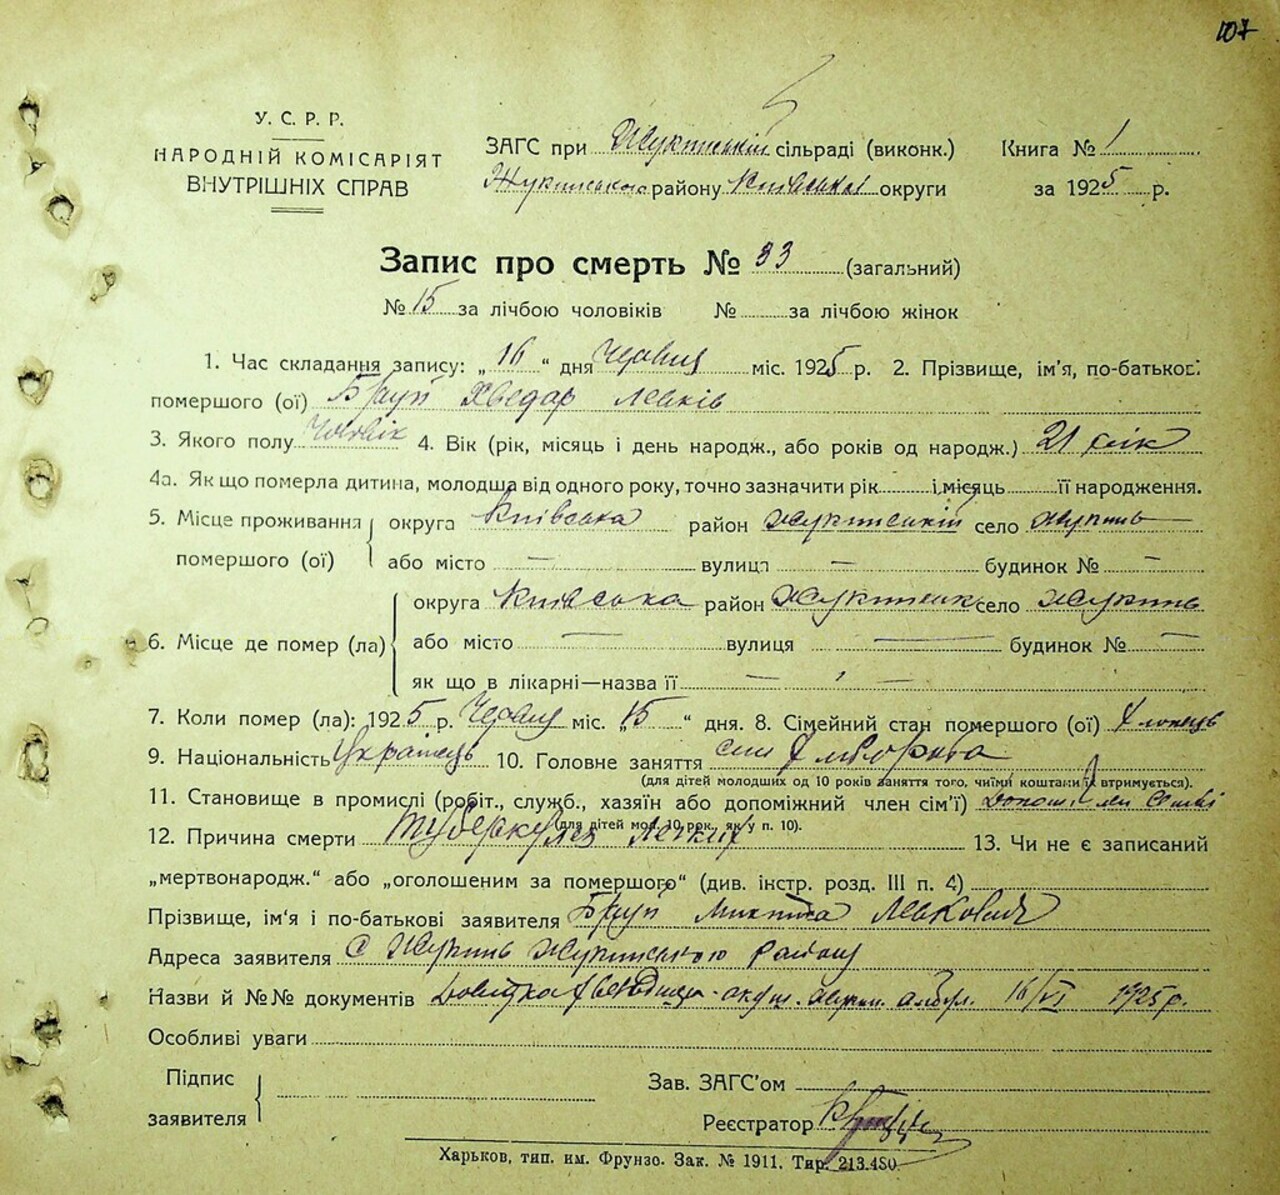 107
У. С. Р. Р.
НАРОДНІЙ КОМІСАРІЯТ
ВНУТРІШНІХ СПРАВ
ЗАГС при Жукинській сільраді (виконк.)
Жукинського району Київської округи
Книга № 1
за 1925 р.
Запис про смерть № 33 (загальний)
№ 15 за лічбою чоловіків № за лічбою жінок
1. Час складання запису: „16“ дня Червня міс. 1925 р. 2. Прізвище, ім'я, по-батькові
помершого (ої) Хведар Левків
3. Якого полу Чоловік 4. Вік (рік, місяць і день народж., або років од народж.) 21 рік
4а. Як що померла дитина, молодша від одного року, точно зазначити рік і місяць її народження.
5. Місце проживання помершого (ої) округа Київська район Жукинський село Жукинь
або місто — вулиця — будинок № —
6. Місце де помер (ла) округа Київська район Жукинськ село Жукинь
або місто — вулиця — будинок № —
як що в лікарні—назва її —
7. Коли помер (ла): 1925 р. Червня міс. „15“ дня. 8. Сімейний стан помершого (ої) Хлопець
9. Національність Українець 10. Головне заняття син Хлібороба
(для дітей молодших од 10 років заняття того, чиїми коштами їх втримується).
11. Становище в промислі (робіт., служб., хазяїн або допоміжний член сім'ї)
(для дітей мол. 10 рок. як у п. 10).
12. Причина смерти Туберкулез Легких 13. Чи не є записаний
„мертвонародж.“ або „оголошеним за помершого“ (див. інстр. розд. III п. 4)
Прізвище, ім'я і по-батькові заявителя Микита Левкович
Адреса заявителя с Жукинь Жукинського району
Назви й №№ документів Довідка 16/VI 1925 р.
Особливі уваги
Підпис заявителя
Зав. ЗАГС'ом
Реєстратор
Харьков, тип. им. Фрунзо. Зак. № 1911. Тир. 213.480